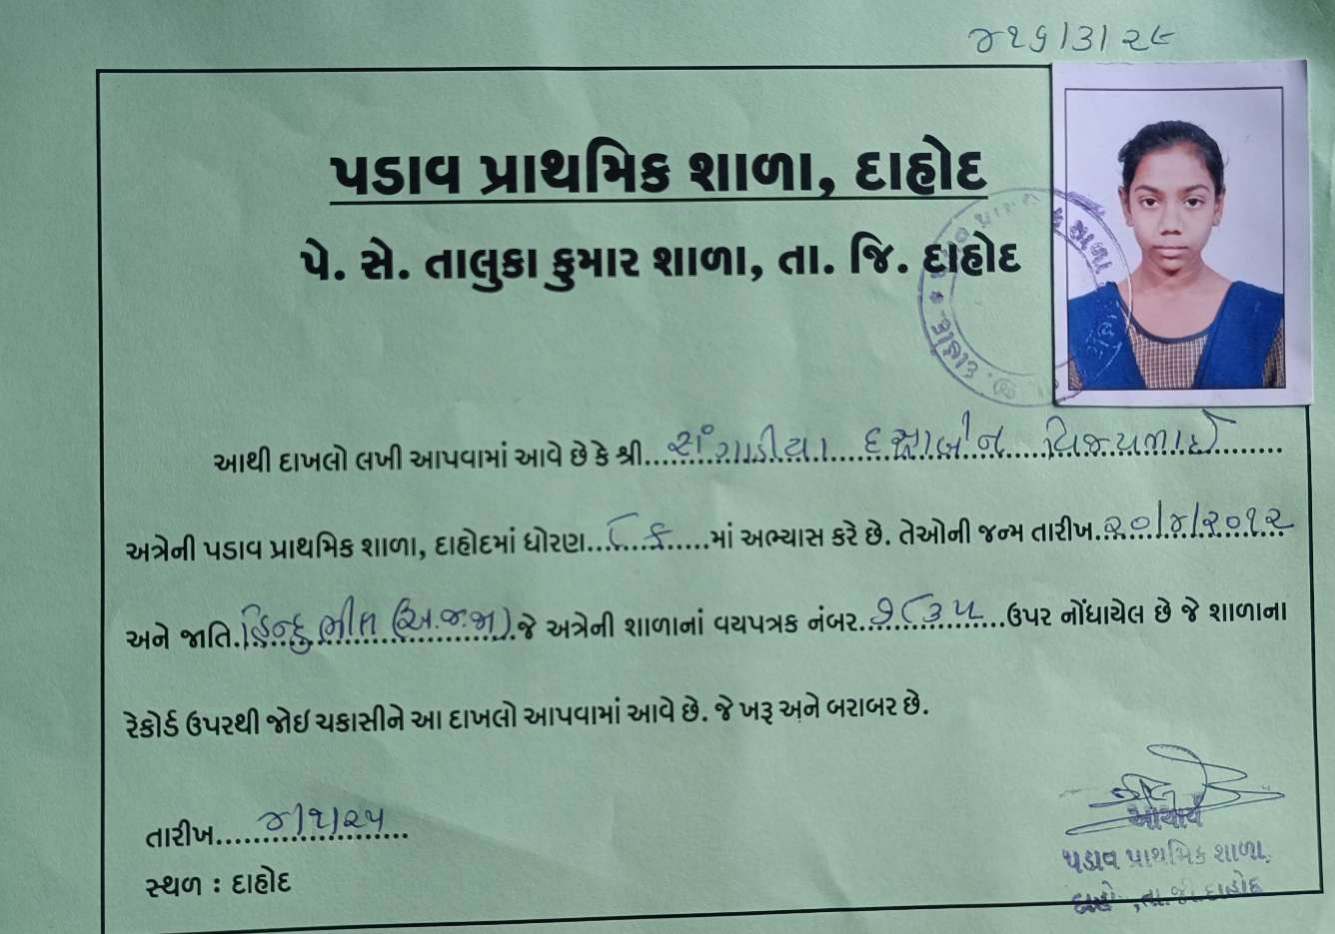 ૪૧૬/૩/૨૯
પડાવ પ્રાથમિક શાળા, દાહોદ
પે. સે. તાલુકા કુમાર શાળા, તા. જિ. દાહોદ
આથી દાખલો લખી આપવામાં આવે છે કે શ્રી સંગાડીયા દક્ષાબેન વિજયભાઈ
અત્રેની પડાવ પ્રાથમિક શાળા, દાહોદમાં ધોરણ ૮ ક માં અભ્યાસ કરે છે. તેઓની જન્મ તારીખ ૨૦/૪/૨૦૧૨
અને જાતિ હિન્દુ ભીલ (અ.જ.જા) જે અત્રેની શાળાનાં વયપત્રક નંબર ૧૮૩૫ ઉપર નોંધાયેલ છે જે શાળાના
રેકોર્ડ ઉપરથી જોઈ ચકાસીને આ દાખલો આપવામાં આવે છે. જે ખરૂ અને બરાબર છે.
તારીખ ૪/૧/૨૫
સ્થળ : દાહોદ
આચાર્ય
પડાવ પ્રાથમિક શાળા,
તા.જી. દાહોદ